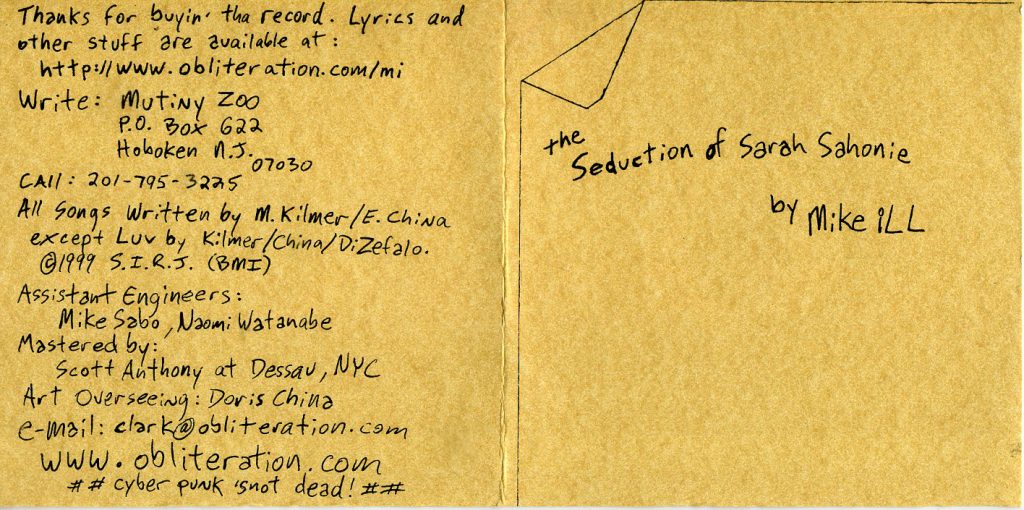 Thanks for buyin' tha record. Lyrics and
other stuff are available at:
http://www.obliteration.com/mi
Write: Mutiny Zoo
P.O. Box 622
Hoboken N.J.
07030
CAll: 201-795-3225
All Songs Written by M. Kilmer/E. China
except Luv by Kilmer/China/DiZefalo.
©1999 S.I.R.J. (BMI)
Assistant Engineers:
Mike Sabo, Naomi Watanabe
Mastered by:
Scott Anthony at Dessau, NYC
Art Overseeing: Doris China
e-mail: clark@obliteration.com
www.obliteration.com
## cyber punk 'snot dead! ##
the Seduction of Sarah Sahonie
by Mike iLL